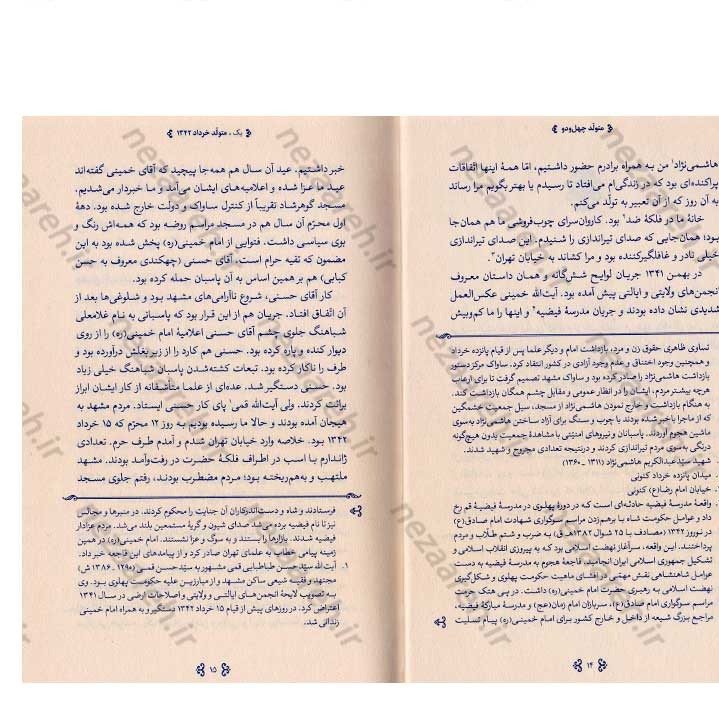 متولد چهل‌ودو
هاشمی‌نژاد¹ من به همراه برادرم حضور داشتیم، امّا همهٔ اینها اتّفاقات
پراکنده‌ای بود که در زندگی‌ام می‌افتاد تا رسیدم یا بهتر بگویم مرا رساند
به آن روز که از آن تعبیر به تولّد می‌کنم.
خانهٔ ما در فلکهٔ ضد² بود. کاروان‌سرای چوب‌فروشی ما هم همان‌جا
بود؛ همان‌جایی که صدای تیراندازی را شنیدم. این صدای تیراندازی
خیلی نادر و غافلگیرکننده بود و مرا کشاند به خیابان تهران³.
در بهمن ۱۳۴۱ جریان لوایح شش‌گانه و همان داستان معروف
انجمن‌های ولایتی و ایالتی پیش آمده بود. آیت‌الله خمینی عکس‌العمل
شدیدی نشان داده بودند و جریان مدرسهٔ فیضیه⁴ و اینها را ما کم‌وبیش
تساوی ظاهری حقوق زن و مرد، بازداشت امام و دیگر علما پس از قیام پانزده خرداد
و همچنین وجود اختناق و عدم وجود آزادی در کشور انتقاد کرد. ساواک مرکز دستور
بازداشت هاشمی‌نژاد را صادر کرده بود و ساواک مشهد تصمیم گرفت تا برای ارعاب
هرچه بیشتر مردم، ایشان را در انظار عمومی و مقابل چشم همگان بازداشت کند.
به هنگام بازداشت و خارج نمودن هاشمی‌نژاد از مسجد، سیل جمعیت خشمگین
که از ماجرا باخبر شده بودند با چوب و سنگ برای آزاد ساختن هاشمی‌نژاد به‌سوی
ماشین هجوم آوردند. پاسبانان و نیروهای امنیّتی با مشاهدهٔ جمعیت بدون هیچ‌گونه
درنگی به‌سوی مردم تیراندازی کردند و درنتیجه تعدادی مجروح و شهید شدند.
شهید سیّد عبدالکریم هاشمی‌نژاد (۱۳۱۱ ـ ۱۳۶۰)
میدان پانزده خرداد کنونی
خیابان امام رضا(ع) کنونی
واقعهٔ مدرسهٔ فیضیه حادثه‌ای است که در دورهٔ پهلوی در مدرسهٔ فیضیهٔ قم رخ
داد و عوامل حکومت شاه با برهم‌زدن مراسم سوگواری شهادت امام صادق(ع)
در نوروز ۱۳۴۲ (مصادف با ۲۵ شوال ۱۳۸۲هـ.ق) به ضرب و شتم طلّاب و مردم
پرداختند. این واقعه، سرآغاز نهضت اسلامی بود که به پیروزی انقلاب اسلامی و
تشکیل جمهوری اسلامی ایران انجامید. فاجعهٔ هجوم به مدرسهٔ فیضیه به دست
عوامل شاهنشاهی نقش مهمّی در افشای ماهیت حکومت پهلوی و شکل‌گیری
نهضت اسلامی به رهبری حضرت امام خمینی(ره) داشت. در پی هتک حرمت
مراسم سوگواری امام صادق(ع)، سربازان امام زمان(عج) و مدرسهٔ مبارکهٔ فیضیه،
مراجع بزرگ شیعه از داخل و خارج کشور برای امام خمینی(ره) پیام تسلیت
۱۴
یک ، متولّد خرداد ۱۳۴۲
خبر داشتیم. عید آن سال هم همه‌جا پیچید که آقای خمینی گفته‌اند
عید ما عزا شده و اعلامیه‌های ایشان می‌آمد و ما خبردار می‌شدیم.
مسجد گوهرشاد تقریباً از کنترل ساواک و دولت خارج شده بود. دههٔ
اول محرّم آن سال هم در مسجد مراسم روضه بود که همه‌اش رنگ و
بوی سیاسی داشت. فتوایی از امام خمینی(ره) پخش شده بود به این
مضمون که تقیه حرام است، آقای حسنی (چهکندی معروف به حسن
کبابی) هم بر همین اساس به آن پاسبان حمله کرده بود.
کار آقای حسنی، شروع ناآرامی‌های مشهد بود و شلوغی‌ها بعد از
آن اتّفاق افتاد. جریان هم از این قرار بود که پاسبانی به نام غلامعلی
شباهنگ جلوی چشم آقای حسنی اعلامیهٔ امام خمینی(ره) را از روی
دیوار کنده و پاره کرده بود. حسنی هم کارد را از زیر بغلش درآورده بود و
طرف را ناکار کرده بود. تبعات کشته‌شدن پاسبان شباهنگ خیلی زیاد
بود. حسنی دستگیر شد. عده‌ای از علما متأسّفانه از کار ایشان ابراز
برائت کردند. ولی آیت‌الله قمی¹ پای کار حسنی ایستاد. مردم مشهد به
هیجان آمده بودند و حالا ما رسیده بودیم به روز ۱۲ محرّم که ۱۵ خرداد
۱۳۴۲ بود. خلاصه وارد خیابان تهران شدم و آمدم طرف حرم. تعدادی
ژاندارم با اسب در اطراف فلکهٔ حضرت در رفت‌وآمد بودند. مشهد
ملتهب و به‌هم‌ریخته بود؛ مردم مضطرب بودند. رفتم جلوی مسجد
فرستادند و شاه و دست‌اندرکاران آن جنایت را محکوم کردند. در منبرها و مجالس
نیز تا نام فیضیه برده می‌شد صدای شیون و گریهٔ مستمعین بلند می‌شد. مردم عزادار
فیضیه شدند. بازارها را بستند و به سوگ و عزا نشستند. امام خمینی(ره) در همین
زمینه پیامی خطاب به علمای تهران صادر کرد و از پیامدهای این فاجعه خبر داد.
۱. آیت الله سیّد حسن طباطبایی قمی مشهور به سیّد حسن قمی (۱۲۹۰ ـ ۱۳۸۶ ش)
مجتهد و فقیه شیعی ساکن مشهد و از مبارزین علیه حکومت پهلوی بود. وی
به تصویب لایحهٔ انجمن‌های ایالتی و ولایتی و اصلاحات ارضی در سال ۱۳۴۱
اعتراض کرد. در روزهای پیش از قیام ۱۵ خرداد ۱۳۴۲ دستگیر و به همراه امام خمینی
زندانی شد.
۱۵
nezaareh.ir